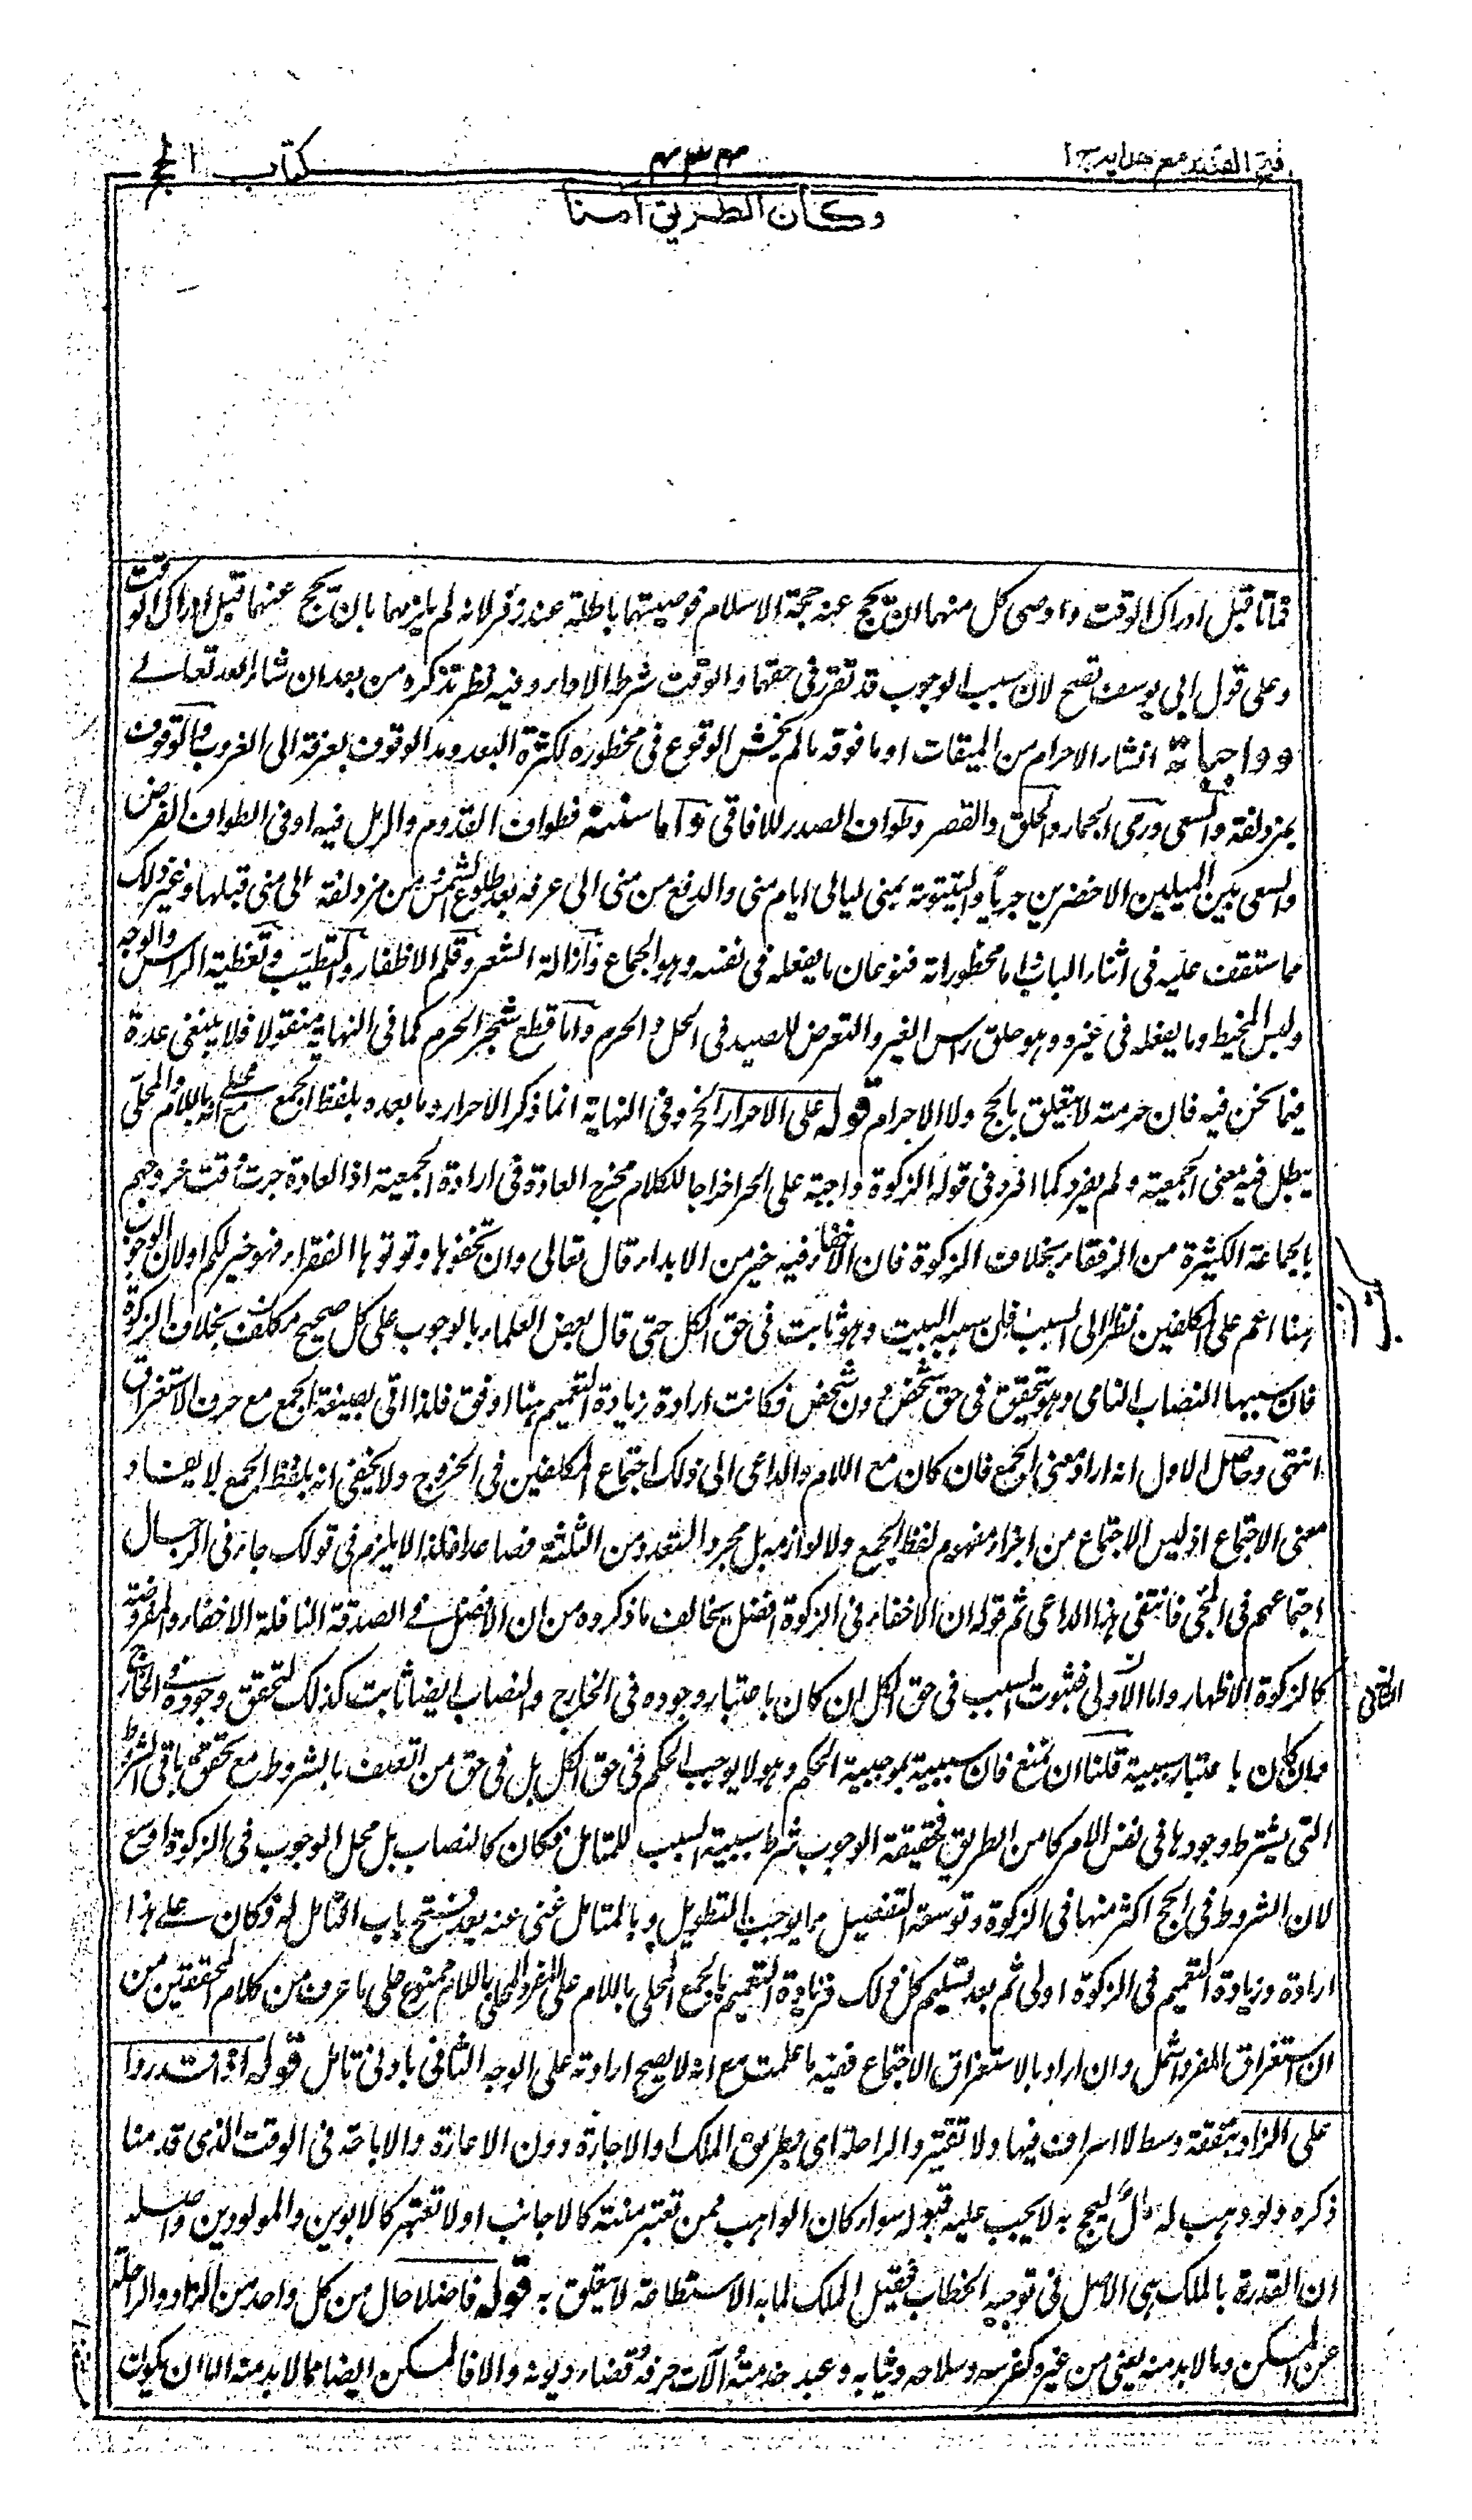 فتح القدير مع هدايه ج ١
٤٣٤
كتاب الحج
وكان الطريق آمنا
فماتا قبل ادراك الوقت واوصى كل منهما ان يحج عنه حجة الاسلام فوصيتهما باطلة عند زفر لانه لم يلزمهما بان يحج عنهما قبل ادراك الوقت
وعلى قول ابى يوسف تصح لان سبب الوجوب قد تقرر فى حقهما والوقت شرط الاداء وفيه نظر نذكره من بعد ان شاء الله تعالے
وواجباته انشاء الاحرام من الميقات او ما فوقه مالم يخش الوقوع فى محظوره لكثرة البعد ومد الوقوف بعرفة الى الغروب والوقوف
بمزدلفة والسعى ورمى الجمار والحلق والقصر وطواف الصدر للافاقى واما سننه فطواف القدوم والرمل فيه او فى الطواف الفرض
والسعى بين الميلين الاخضرين جرياً والبيتوتة بمنى ليالى ايام منى والدفع من منى الى عرفه بعد طلوع الشمس ومن مزدلفة الى منى قبلها وغير ذلك
مما ستقف عليه فى اثناء الباب واما محظوراته فنوعان ما يفعله فى نفسه وهو الجماع وازالة الشعر وقلم الاظفار والتطيب وتغطية الراس والوجه
ولبس المخيط وما يفعله فى غيره وهو حلق راس الغير والتعرض للصيد فى الحل والحرم واما قطع شجر الحرم كما فى النهاية منقولا فلا ينبغى عده
فيما نحن فيه فان حرمته لا تتعلق بالحج ولا الاحرام قوله على الاحرار الخ وفى النهاية انما ذكر الاحرار وما بعده بلفظ الجمع مع انه محلى باللام والمحلّى
يبطل فيه معنى الجمعية ولم يفرد كما افرد فى قوله الزكوة واجبة على الحر اخراجا للكلام مخرج العادة فى ارادة الجمعية اذ العادة جرت وقت خروجهم
بالجماعة الكثيرة من الرفقاء بخلاف الزكوة فان الاخفاء فيه خير من الابداء قال تعالى وان تخفوها وتوتوها الفقراء فهو خير لكم او لان الوجوب
هنا اعم على المكلفين نظرا الى السبب فان سببه البيت وهو ثابت فى حق الكل حتى قال بعض العلماء بالوجوب على كل صحيح مكلف بخلاف الزكوة
فان سببها النصاب النامى وهو يتحقق فى حق شخص دون شخص فكانت ارادة زيادة التعميم هنا اوفق فلذا اتى بصيغة الجمع مع حرف الاستغراق
انتهى وحاصل الاول انه اراد معنى الجمع فان كان مع اللام والداعى الى ذلك اجتماع المكلفين فى الخروج ولا يخفى انه بلفظ الجمع لا يفاد
معنى الاجتماع اذ ليس الاجتماع من اجزاء مفهوم لفظ الجمع ولا لوازمه بل مجرد التعدد من الثلثة فصاعدا فلذا لا يلزم فى قولك جاءنى الرجال
اجتماعهم فى المجى فانتفى هذا الداعى ثم قوله ان الاخفاء فى الزكوة افضل يخالف ما ذكروه من ان الافضل فے الصدقة النافلة الاخفاء والمفروضة
كالزكوة الاظهار واما الاولى فثبوت السبب فى حق الكل ان كان باعتبار وجوده فى الخارج والنصاب ايضا ثابت كذلك لتحقق وجوده فے الخارج
وان كان باعتبار سببية قلنا ان نمنع فان سببية بموجبية الحكم وهو لا يوجب الحكم فى حق الكل بل فى حق من اتصف بالشروط مع تحقق باقى الشروط
التى يشترط وجودها فى نفس الامر كامن الطريق فحقيقة الوجوب شرط سببية السبب للمتامل فكان كالنصاب بل محل الوجوب فى الزكوة اوسع
لان الشروط فى الحج اكثر منها فى الزكوة وتوسعة التفصيل مما يوجب التطويل وبالمتامل غنى عنه بعد فتح باب التامل له فكان علے هذا
ارادة زيادة التعميم فى الزكوة اولى ثم بعد تسليم كل ذلك فزيادة التعميم بالجمع المحلى باللام على المفرد المحلى باللام ممنوع على ما عرف من كلام المحققين من
ان استغراق المفرد اشمل وان اراد بالاستغراق الاجتماع ففيه ما علمت مع انه لا يصح ارادته على الوجه الثانى بادنى تامل قوله اذا قدروا
على الزاد بنفقة وسط لا اسراف فيها ولا تقتير والراحلة اى بطريق الملك او الاجارة دون الاعارة والاباحة فى الوقت الذى قدمنا
ذكره ولو وهب له مال ليحج به لا يجب عليه قبوله سواء كان الواهب ممن تعتبر منته كالاجانب او لا تعتبر كالابوين والمولودين واصله
ان القدرة بالملك هى الاصل فى توجيه الخطاب فقبل الملك لما به الاستطاعة لا يتعلق به قوله فاضلا حال من كل واحد من الزاد والراحلة
عن المسكن وما لابد منه يعنى من غيره كفرسه وسلاحه وثيابه وعبد خدمته وآلات حرفه وقضاء ديونه والا فالمسكن ايضا مما لابد منه اما ان يكون